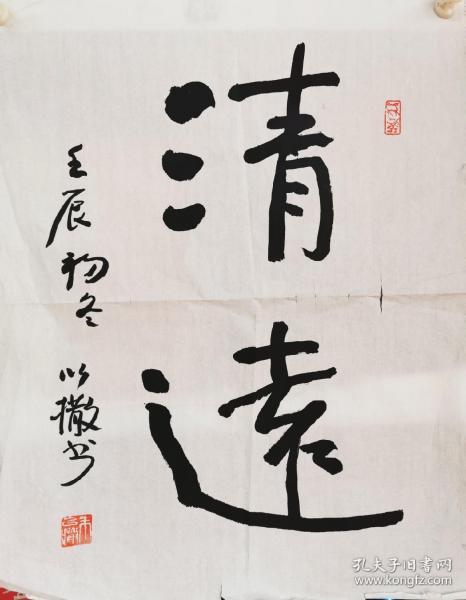 清遠
壬辰初冬 以撒书
孔夫子旧书网
www.kongfz.com